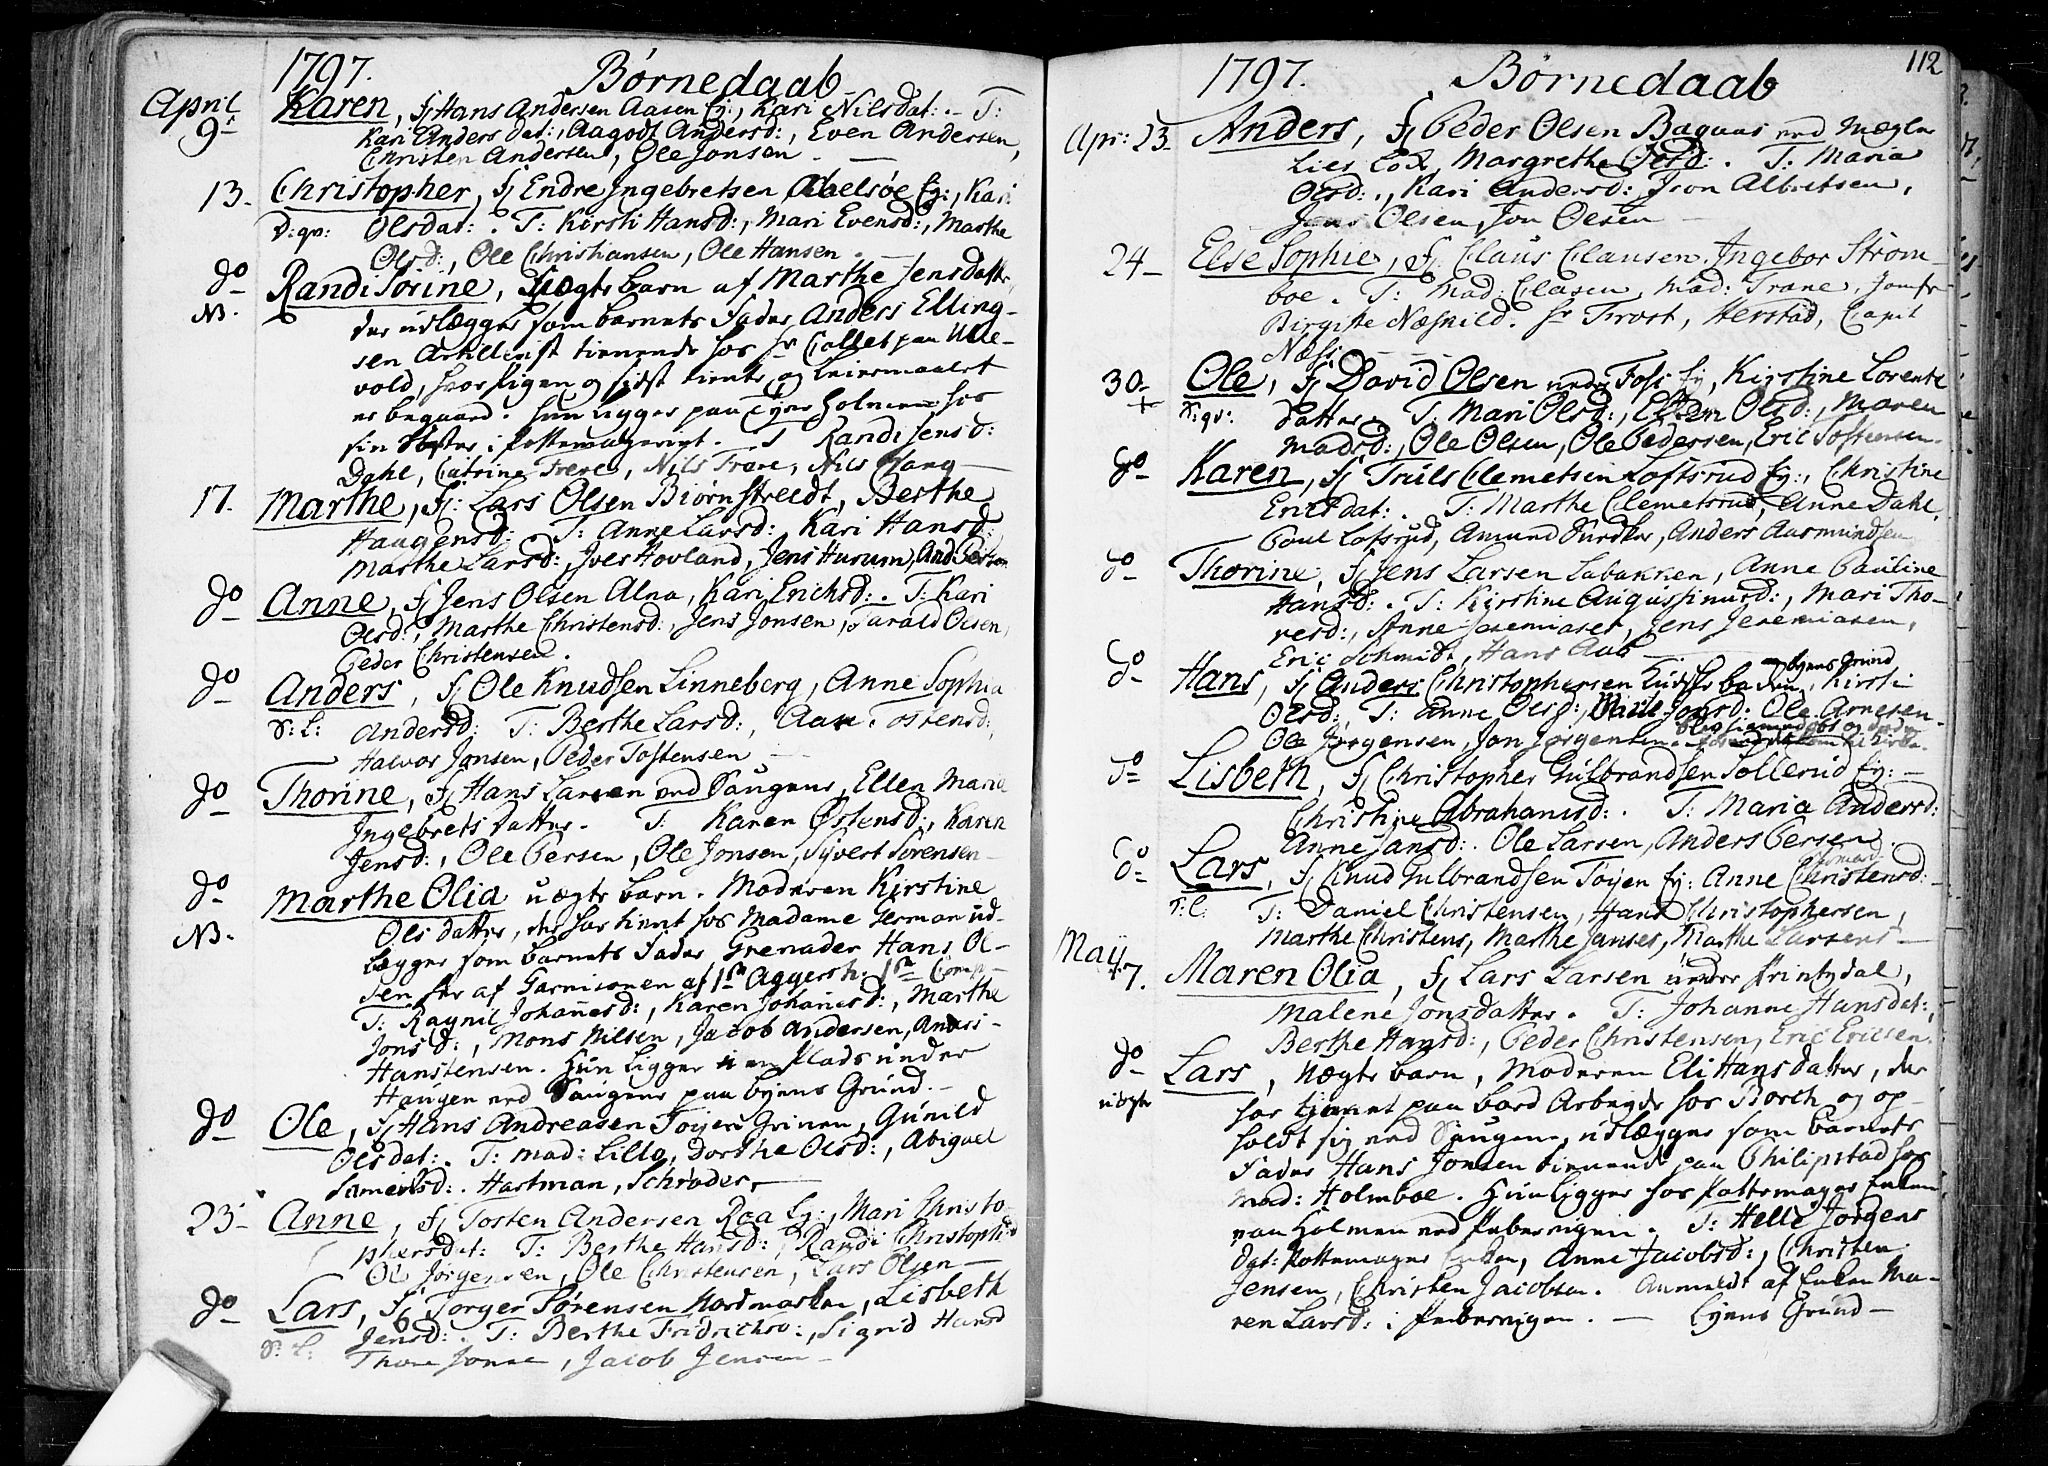 1797. Børnedaab
April 9de Karen, F/ Hans Andersen Aasen Ej:, Kari Nilsdat:. T:
Kari Anders dat:, Aagodt Andersd:, Even Andersen,
Christen Andersen, Ole Jonsen
13. Christopher, F/ Endre Ingebretsen Abelsøe Ej:, Kari
Olsdat:. T: Kirsti Hansd:, Mari Evensd:, Marthe
Olsd:, Ole Christiansen, Ole Hansen.
do NB. Randi Torine, Uægte barn af Marthe Jensdatter,
der udlægger som barnets Fader Anders Elling-
sen Artillerist tienende hos Hr Collet paa Ulle-
vold, hvor pigen og sidst tiente og Leiermaalet
er begaaed. Hun ligger paa Tyveholmen hos
sin Søster i Pottemagerigt. T Randi Jensd:
Dahl, Catrine Trere, Nils Trere, Nils Haug
17. Marthe, F/: Lars Olsen Biørnstredt, Berthe
Haagensd: T: Anne Larsd:, Kari Hansd:
Marthe Larsd:, Iver Hovland, Jens Hurum, And: Person
do Anne, F/ Jens Olsen Alna, Kari Erichsd:. T: Kari
Olsd:, Marthe Christensd:, Jens Jonsen, Tarald Olsen,
Peder Christensen.
do Anders, F/ Ole Knudsen Linneberg, Anne Sophia
Andersd: T: Berthe Larsd:, Aase Tostensd:,
Halvor Jansen, Peder Tostensen
do Thorine, F/ Hans Larsen ved Saugene, Ellen Maria
Ingebrets datter. T: Karen Østensd:, Karen
Jensd:, Ole Persen, Ole Jonsen, Syvert Sørensen
do NB. Marthe Olia uægte barn. Moderen Kirstine
Ols datter, der har tient hos Madame Herman ud-
lægger som barnets Fader Grenader Hans Ol-
sen her af Garnisonen af 1ste Aggersh. 1ste Comp
T: Raynil Johanesd:, Karen Johanesd:, Marthe
Jonsd:, Mons Nilsen, Jacob Andersen, Anders
Hanstensen. Hun ligger i en Plads under
Haugen ved Saugene paa byens Grund.
do Ole, F/ Hans Andreasen Toyen Grinen, Gunild
Olsdat:. T: Mad: Lillo, Dorthe Olsd:, Abigael
Samuelsd:. Hartman, Schrøder,
23 Anne, F/ Tosten Andersen Roa Ej:, Mari Christo
phersdat: T: Berthe Hansd:, Randi Christophd
Ole Jørgensen, Ole Christensen, Lars Olsen
do Lars, F/ Torger Sørensen Nordmarken, Lisbeth
Jensd:. T: Berthe Fridrichsd:, Sigrid Hansd
Thore Jonsen, Jacob Jensen
1797. Børnedaab 112
Apr: 23 Anders, F/ Peder Olsen Bagaas ved Mægler
Lies Løk, Margrethe Olsd:. T: Maria
Olsd:, Kari Andersd: Iron Albretsen,
Jens Olsen, Jon Olsen
24 Else Sophie, F/: Claus Clausen, Ingebor Strøm-
boe. T: Mad: Clasen, Mad: Trane, Jomfr
Birgitte Næskild. Hr Trost, Herstad, Capit
Næss
30 Ole, F/ David Olsen under Foss Ej, Kirstine Lorentz
datter. T: Mari Olsd:, Ellen Olsd:, Maren
Madsd:, Ole Olsen, Ole Pedersen, Eric Tostensen.
do Karen, F/ Truls Clemetsen Loftsrud Ej:, Christine
Ericsdat:. T: Marthe Clemetsrud, Anne Dahl,
Poul Lofsrud, Amund, Anders Aasmundsen
do Thorine, F/ Jens Larsen Labakken, Anne Pauline
Hansd:. T: Kirstine Augustinusd:, Mari Tho-
resd:, Anne Jeremiases, Jens Jeremiasen,
Eric Schmidt, Hans Aas
do Hans, F/ Anders Christophersen, byens grund, Kirsti
Olsd:, T: Anne Olsd:, Marie Jonsd. Ole Arnesen.
Ole Jørgensen, Jon Jørgensen.
do Lisbeth, F/ Christopher Gulbrandsen Sollerud Ej:
Christine Abrahamsd:. T: Maria Andersd:
Anne Jansd:. Ole Larsen, Anders Persen.
do Lars, F/ Knud Gulbrandsen Toyen Ej: Anne Christensd:
T: Daniel Christensen, Hans Christophersen,
Marthe Christens, Marthe Janses, Marthe Larsens
May 7. Maren Olia, F/ Lars Larsen under Frintzdal,
Malene Jonsdatter. T: Johanne Hansdat:,
Berthe Hansd:, Peder Christensen, Eric Ericsen.
do uægte Lars, Uægte barn, Moderen Eli Hansdatter, der
har tjenet paa bord Arbeyde hos Borch og op-
holdt sig ved Saugene, udlægger som barnets
Fader Hans Jonsen tienende paa Philipstad hos
Mad: Holmboe. Hun ligger hos Pottemager Enken,
paa Holmen ved Pebervigen. T: Helle Jørgens
dat: Pottemager Enken, Anne Jacobsd:, Christen
Jensen, Christen Jacobsen. Anmeldt af Enken Ma-
ren Larsd: i Pebervigen. Byens Grund